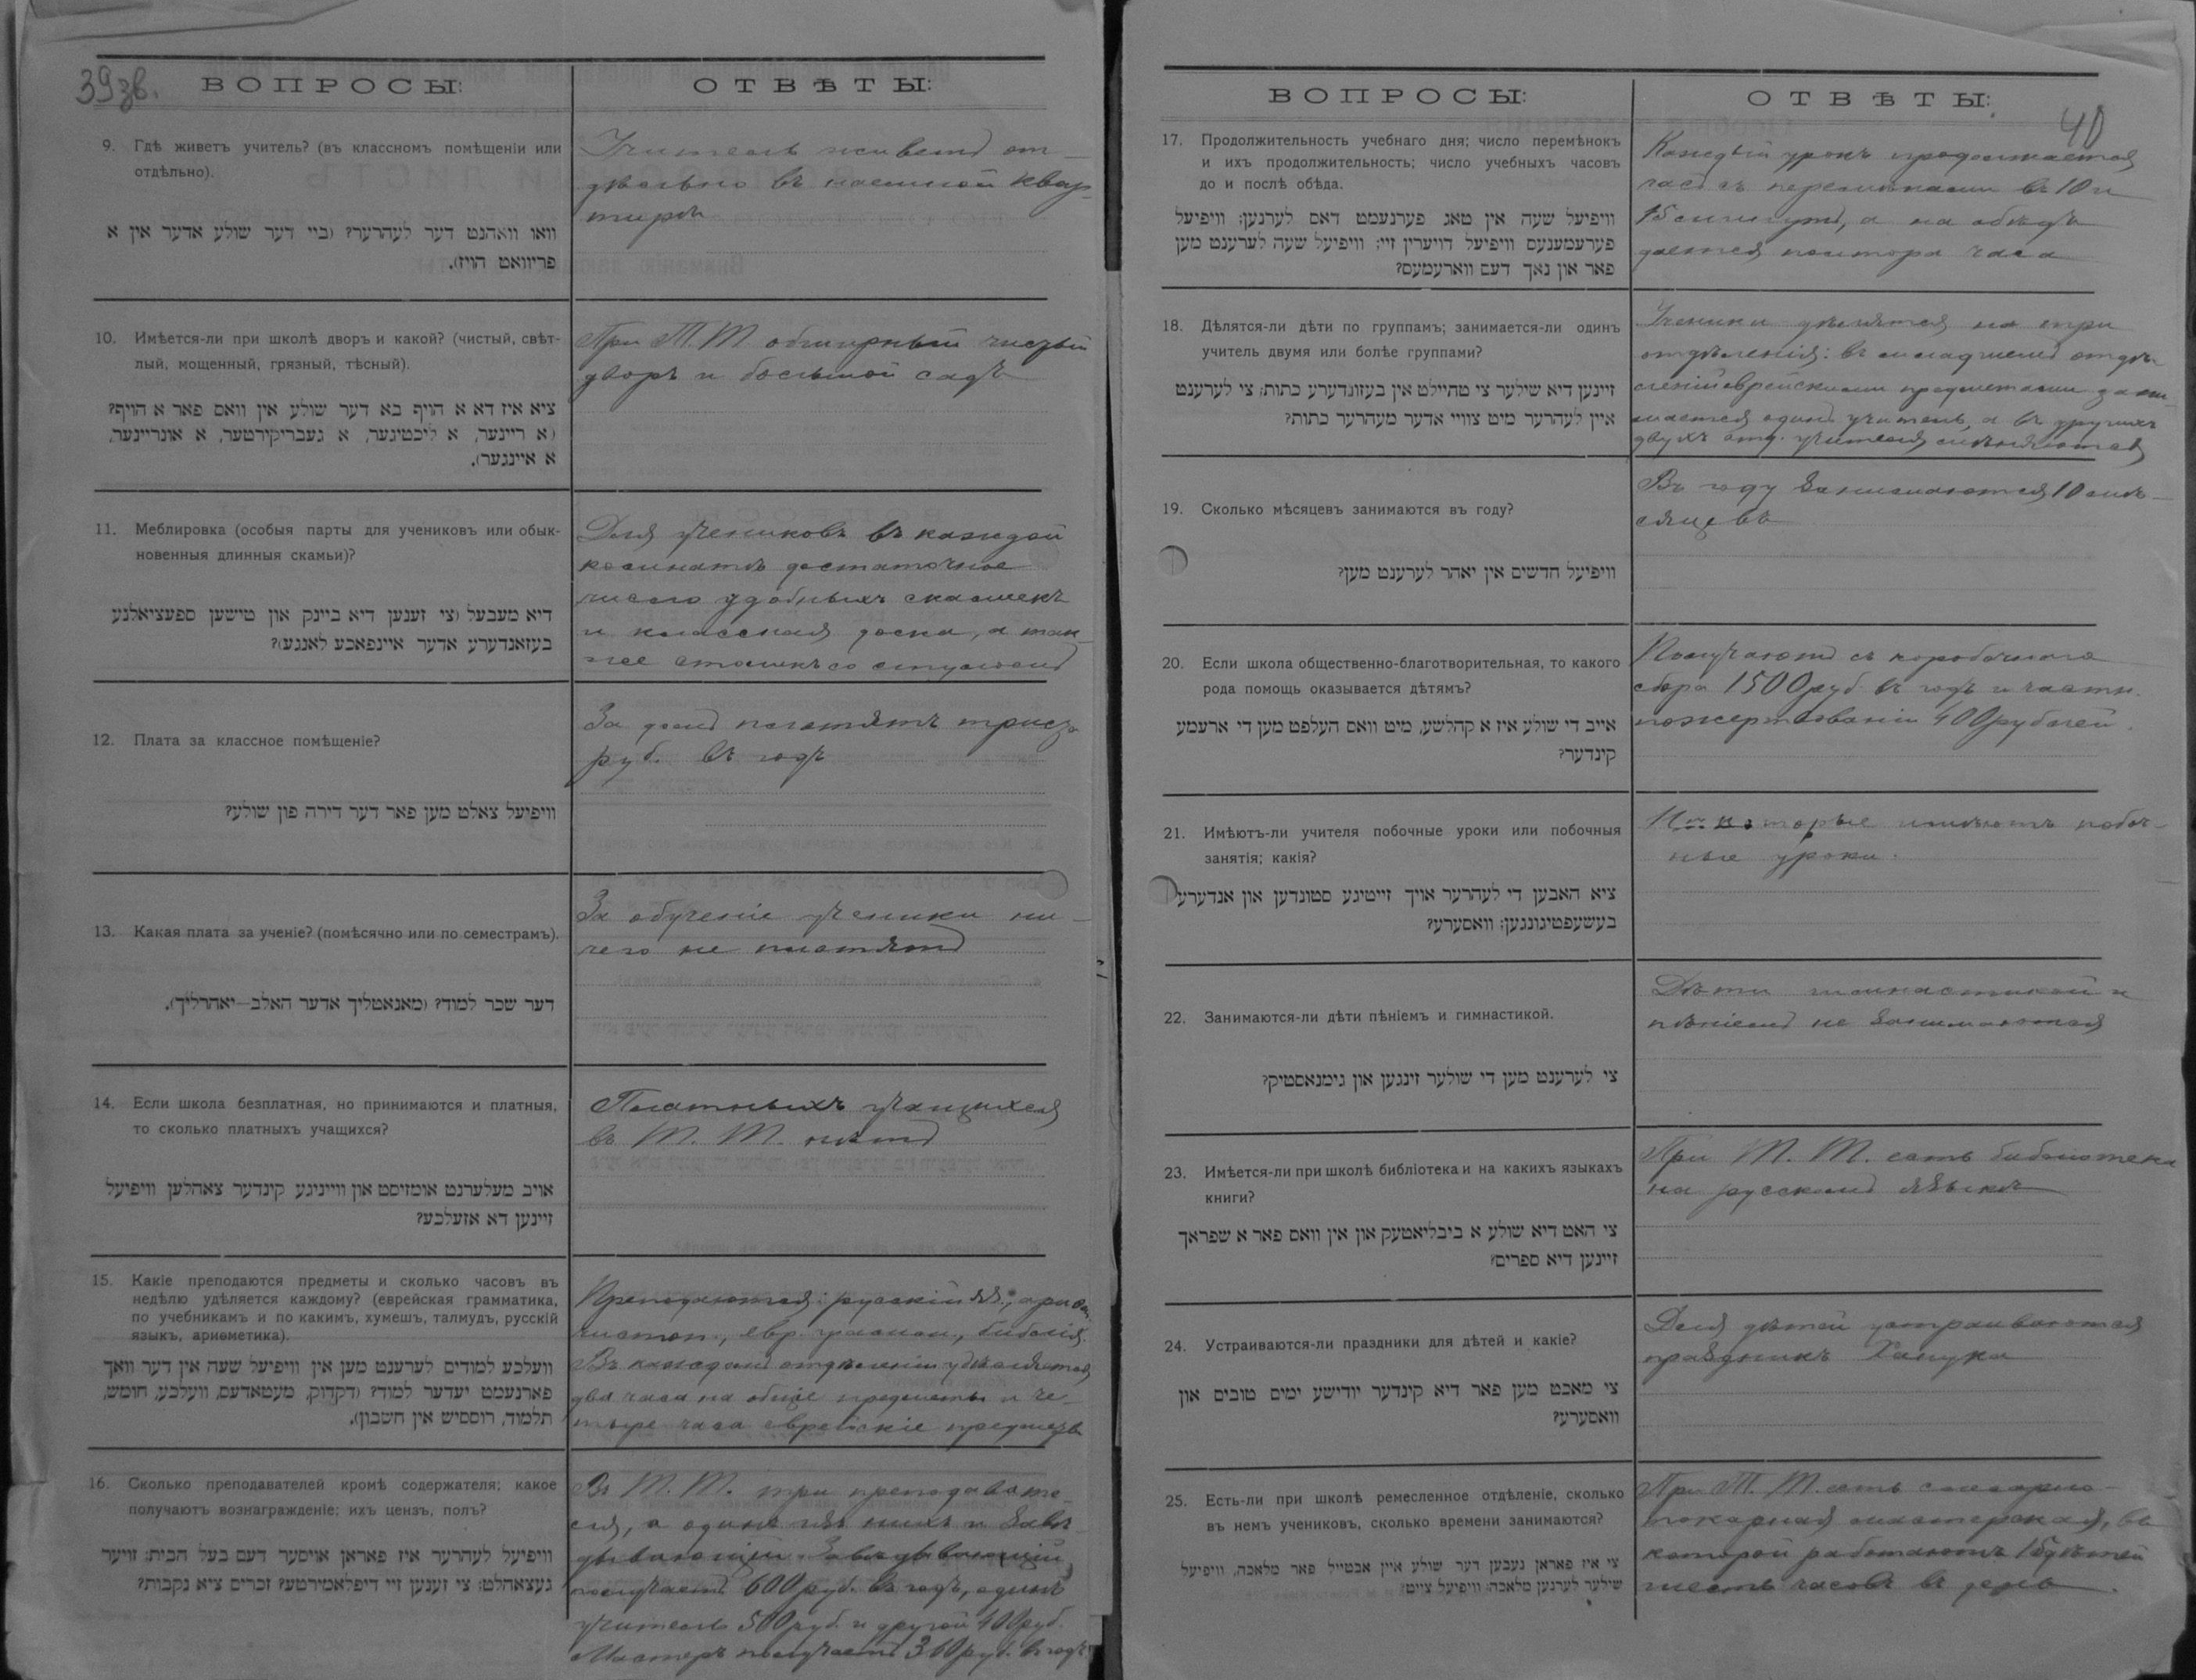 39зв.
ВОПРОСЫ:
ОТВѢТЫ:
9. Гдѣ живетъ учитель? (въ классномъ помѣщеніи или
отдѣльно).
וואו וואהנט דער לעהרער? (ביי דער שולע אדער אין א
פריוואט הויז).
Учитель живетъ от-
дѣльно въ наемной квар-
тирѣ
10. Имѣется-ли при школѣ дворъ и какой? (чистый, свѣт-
лый, мощенный, грязный, тѣсный).
ציא איז דא א הויף בא דער שולע אין וואס פאר א הויף?
(א ריינער, א ליכטיגער, א געבריקירטער, א אונריינער,
א איינגער).
При Т.Т. обширный чистый
дворъ и большой садъ
11. Меблировка (особыя парты для учениковъ или обык-
новенныя длинныя скамьи)?
דיא מעבעל (צי זענען דיא ביינק און טישען ספעציאלנע
בעזאנדערע אדער איינפאכע לאנגע)?
Для учениковъ въ каждой
комнатѣ достаточное
число удобныхъ скамеекъ
и классная доска, а так-
же столикъ со стуломъ
12. Плата за классное помѣщеніе?
וויפיעל צאלט מען פאר דער דירה פון שולע?
За домъ платятъ триста
руб. въ годъ
13. Какая плата за ученіе? (помѣсячно или по семестрамъ).
דער שכר למוד? (מאנאטליך אדער האלב—יאהרליך).
За обученіе ученики ни-
чего не платятъ
14. Если школа безплатная, но принимаются и платныя,
то сколько платныхъ учащихся?
אויב מעלערנט אומזיסט און ווייניגע קינדער צאהלען וויפיעל
זיינען דא אזעלכע?
Платныхъ учащихся
въ Т. Т. нѣтъ
15. Какіе преподаются предметы и сколько часовъ въ
недѣлю удѣляется каждому? (еврейская грамматика,
по учебникамъ и по какимъ, хумешъ, талмудъ, русскій
языкъ, ариѳметика).
וועלכע למודים לערענט מען אין וויפיעל שעה אין דער וואך
פארנעמט יעדער למוד? (דקדוק, מעטאדעס, וועלכע, חומש,
תלמוד, רוססיש אין חשבון).
Преподаются: русскій яз.,
евр. библія.
Въ каждомъ отдѣленіи удѣляется
два часа на общіе предметы и че-
тыре часа еврейскіе предметы
16. Сколько преподавателей кромѣ содержателя; какое
получаютъ вознагражденіе; ихъ цензъ, полъ?
וויפיעל לעהרער איז פאראן אויסער דעם בעל הבית; זויער
געצאהלט; צי זענען זיי דיפלאמירטע? זכרים ציא נקבות?
Въ Т. Т. три преподавате-
ля, а одинъ изъ нихъ и завѣ-
дывающій Завѣдывающій
получаетъ 600 руб. въ годъ, одинъ
учитель 500 руб. и другой 400 руб.
Мастеръ получаетъ 360 руб. въ годъ
40
ВОПРОСЫ:
ОТВѢТЫ:
17. Продолжительность учебнаго дня; число перемѣнокъ
и ихъ продолжительность; число учебныхъ часовъ
до и послѣ обѣда.
וויפיעל שעה אין טאג פערנעמט דאס לערנען; וויפיעל
פערעמענעס וויפיעל דויערין זיי; וויפיעל שעה לערענט מען
פאר און נאך דעם ווארעמעס?
Каждый урокъ продолжается
часъ съ перемѣнками въ 10 и
15 минутъ, а на обѣдъ
дается полтора часа
18. Дѣлятся-ли дѣти по группамъ; занимается-ли одинъ
учитель двумя или болѣе группами?
זיינען דיא שילער צי טהיילט אין בעזונדערע כתות; צי לערענט
איין לעהרער מיט צוויי אדער מעהרער כתות?
Ученики дѣлятся на три
отдѣленія: въ младшемъ отдѣ-
леніи еврейскими предметами зани-
мается одинъ учитель, а въ другихъ
двухъ отд. учителя смѣняются
19. Сколько мѣсяцевъ занимаются въ году?
וויפיעל חדשים אין יאהר לערענט מען?
Въ году занимаются 10 мѣ-
сяцевъ
20. Если школа общественно-благотворительная, то какого
рода помощь оказывается дѣтямъ?
אייב די שולע איז א קהלשע, מיט וואס העלפט מען די ארעמע
קינדער?
Получаютъ съ коробочнаго
сбора 1500 руб. въ годъ и частн.
пожертвованій 400 рублей.
21. Имѣютъ-ли учителя побочные уроки или побочныя
занятія; какія?
ציא האבען די לעהרער אויך זייטיגע סטונדען און אנדערע
בעשעפטיגונגען; וואסערע?
Нѣкоторые имѣютъ побоч-
ные уроки.
22. Занимаются-ли дѣти пѣніемъ и гимнастикой.
צי לערענט מען די שולער זינגען און גימנאסטיק?
Дѣти гимнастикой и
пѣніемъ не занимаются
23. Имѣется-ли при школѣ библіотека и на какихъ языкахъ
книги?
צי האט דיא שולע א ביבליאטעק און אין וואס פאר א שפראך
זיינען דיא ספרים?
При Т. Т. есть библіотека
на русскомъ языкѣ
24. Устраиваются-ли праздники для дѣтей и какіе?
צי מאכט מען פאר דיא קינדער יודישע ימים טובים און
וואסערע?
Для дѣтей устраиваются
праздникъ Ханука
25. Есть-ли при школѣ ремесленное отдѣленіе, сколько
въ немъ учениковъ, сколько времени занимаются?
צי איז פאראן נעבען דער שולע איין אבטייל פאר מלאכה, וויפיעל
שילער לערנען מלאכה; וויפיעל צייט?
При Т. Т. есть слесарно-
токарная мастерская, въ
которой работаютъ 15 дѣтей
шесть часовъ въ день.